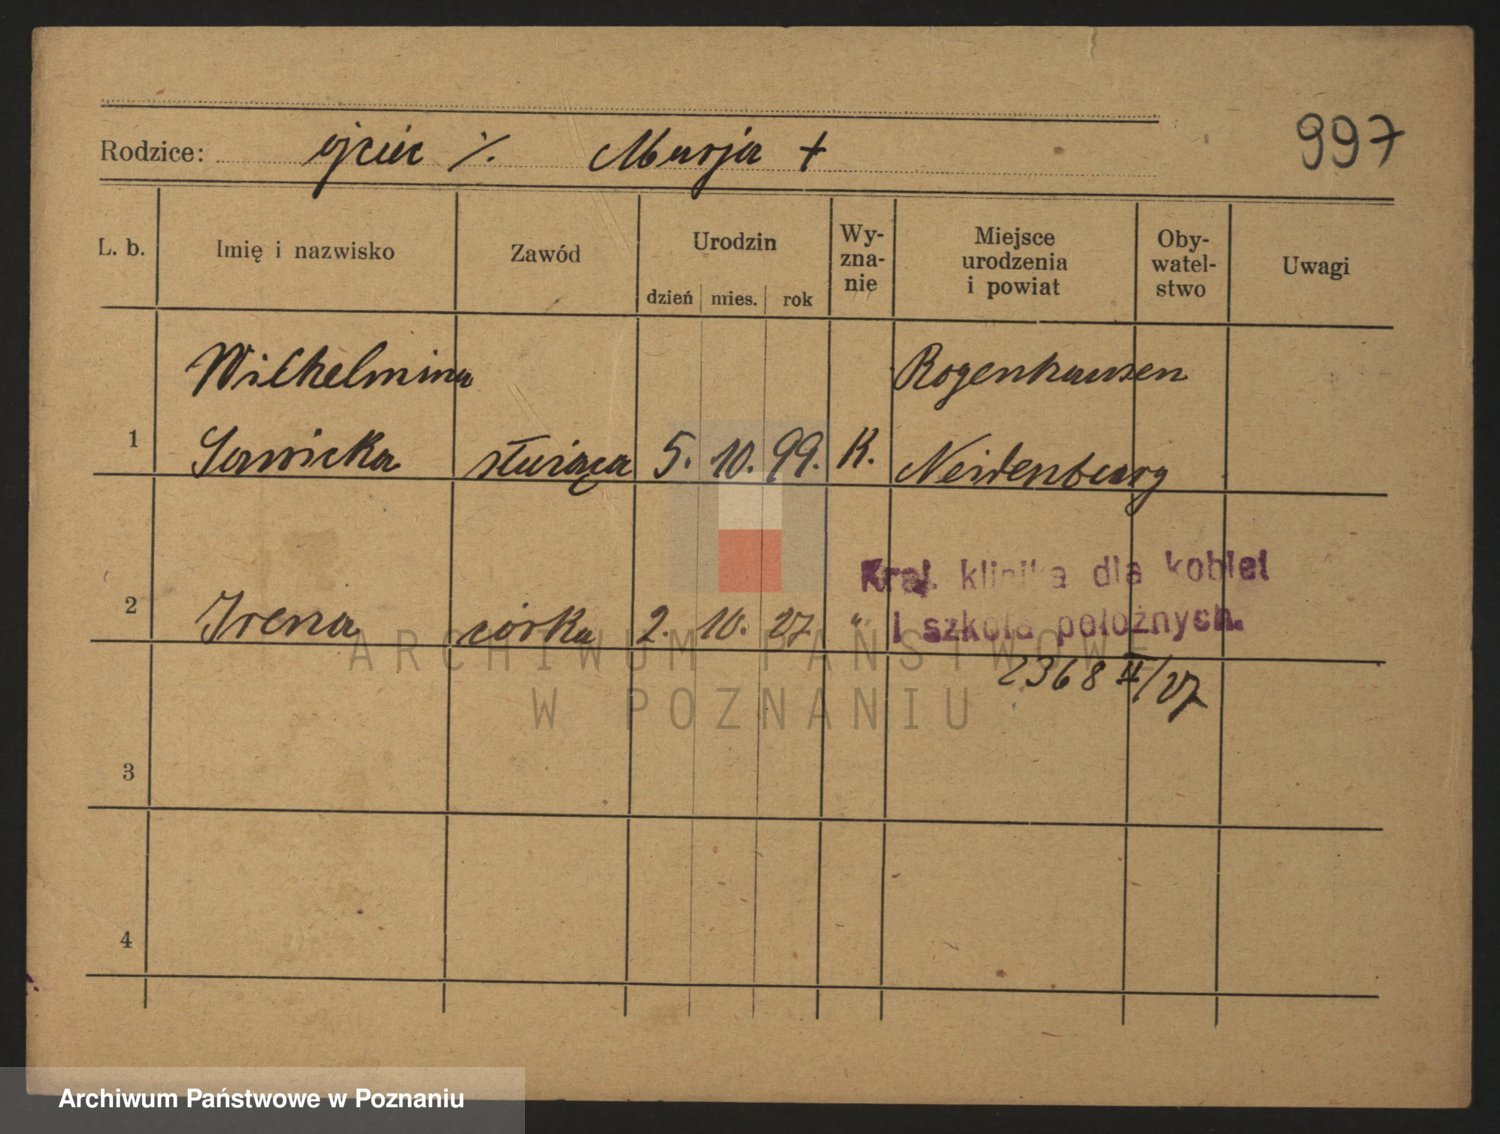 997
Rodzice: ojciec ·/. Marja +
L. b. Imię i nazwisko Zawód Urodzin dzień mies. rok Wy-
zna-
nie Miejsce
urodzenia
i powiat Oby-
watel-
stwo Uwagi
Wilhelmina Rogenhausen
1 Sawicka służąca 5. 10. 99. K. Neidenburg
Kraj. klinika dla kobiet
2 Irena córka 2. 10. 27 " i szkoła położnych.
2368 II/27
3
4
ARCHIWUM PAŃSTWOWE
W POZNANIU
Archiwum Państwowe w Poznaniu